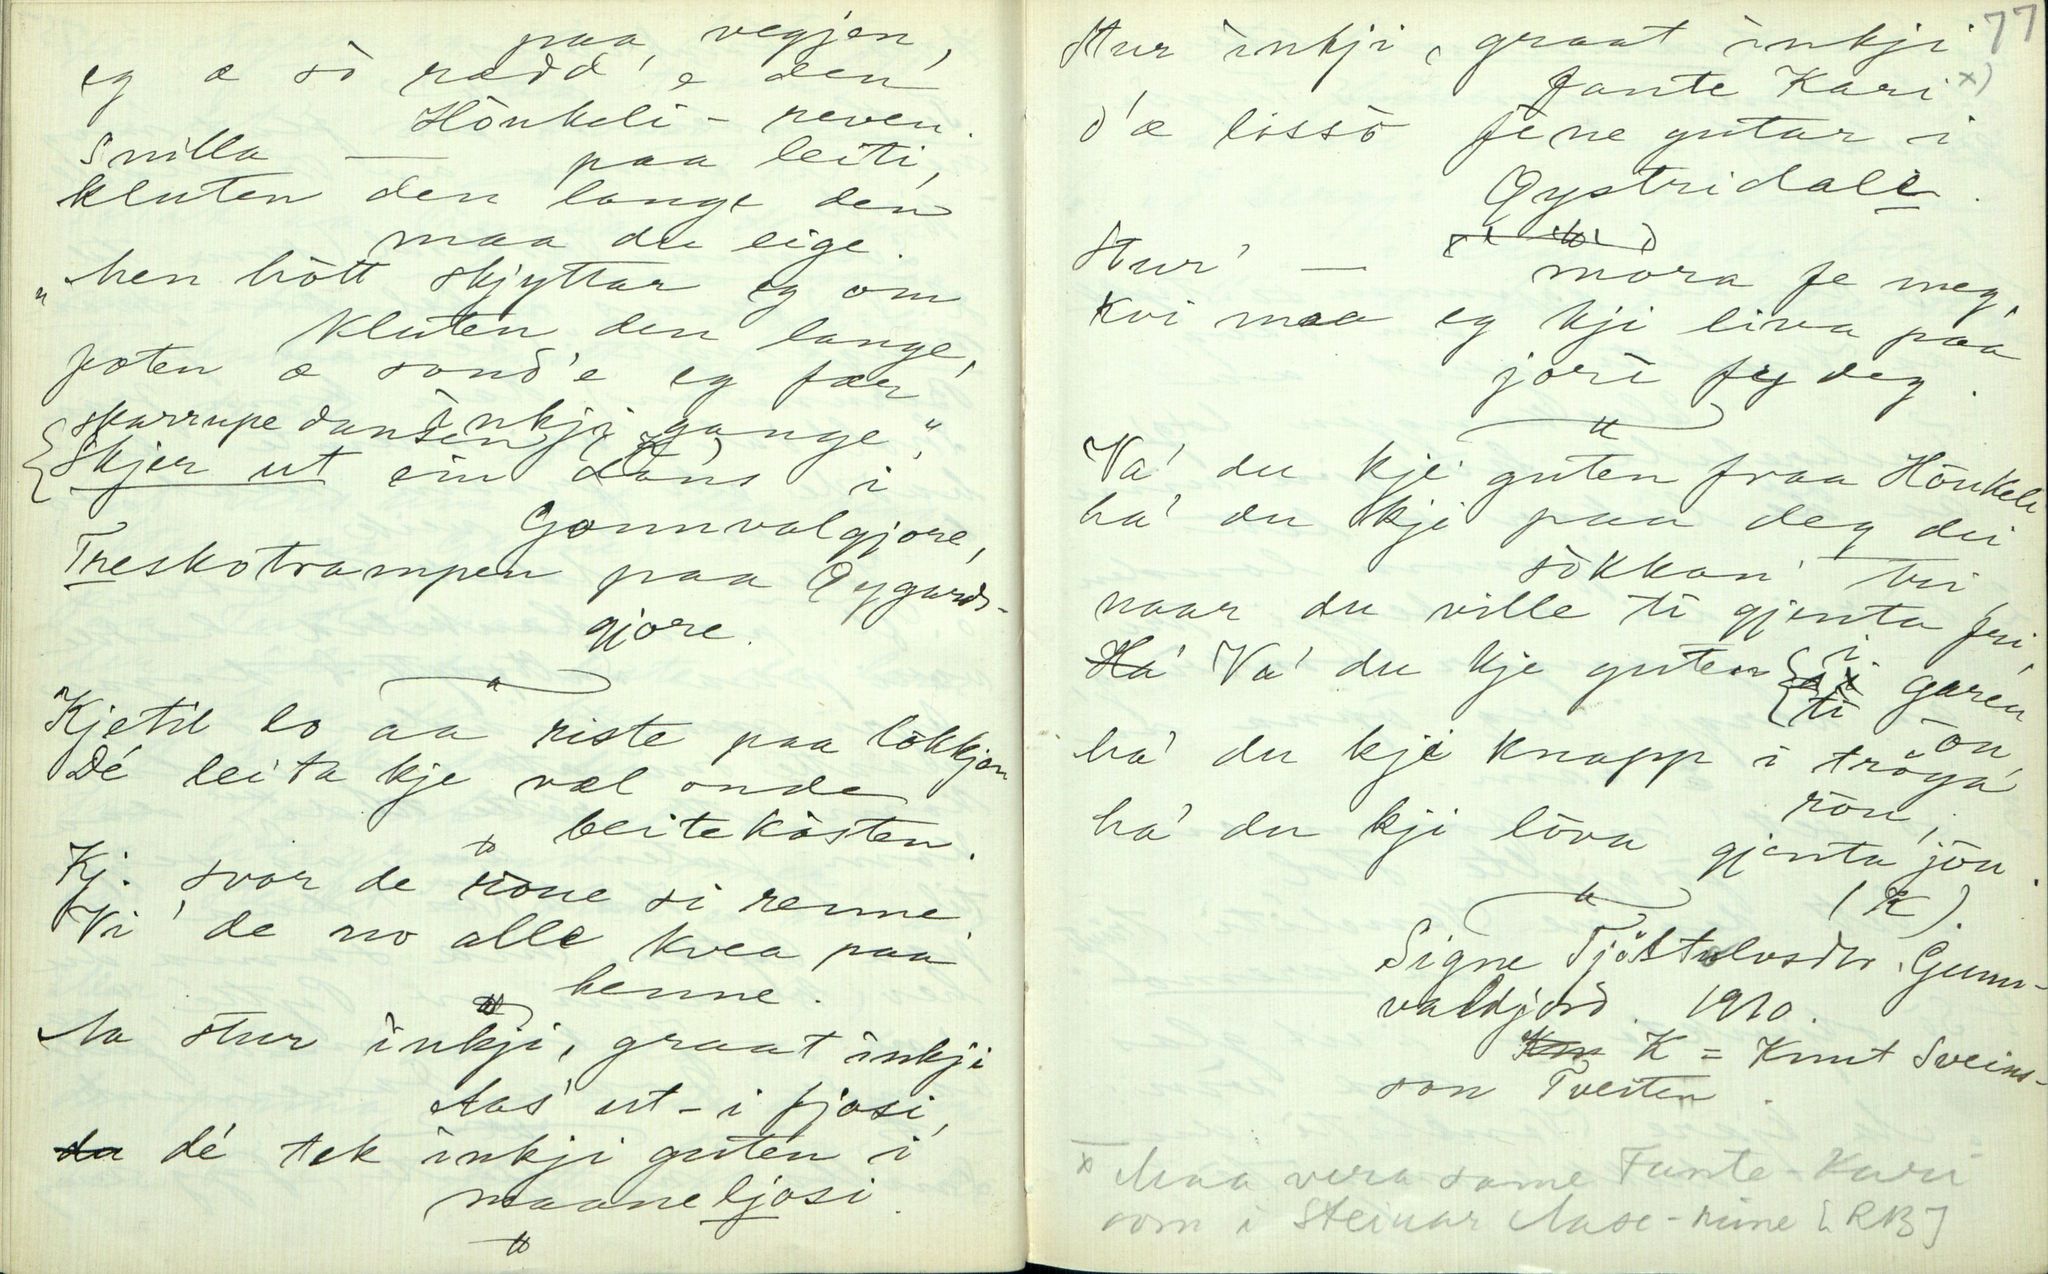 paa vegjen,
eg æ sò rædd' e den
Hònkeli - reven.
Snilla — paa leiti,
kluten den lange den
maa du eige.
"Men hòtt skjyttar eg om
kluten den lange,
foten æ sond'e eg fær
inkji gange."
skarrupe dansen
Skjer ut ein dans i
Gonnvalgjore,
Treskotrampen paa Øygards-
gjore.
Kjetil lo aa riste paa lòkkjon
Dé leita kje væl onde
beitekòsten.
Kj. svor de rione si renne
Vi' de no alle kvea paa
henne.
Aa stur inkji, graat inkji
Aas' ut-i fjosi,
dé tek inkji guten i
maaneljosi.
77
Stur inkji, graat inkji
Fante Kari x)
d'æ lissò fine gutar i
Øystridale.
Stur' — mora fe meg,
Kvi maa eg kji liva paa
jori fy deg.
Va' du kji guten fraa Hònkeli
ha' du kji paa deg dei
sòkkan' tri
naar du ville ti gjenta fri,
Ha' Va' du kje guten i garén
ti
òn
ha' du kji knapp i tròya
ròn,
ha' du kji lòva gjenta jòn.
(K).
Signe Tjöstulvsdtr. Gunn-
valdjord. 1910.
K = Knut Sveins-
son Tveiten.
x Maa vera same Fante-Kari
som i Steinar Aase-rime [RB]